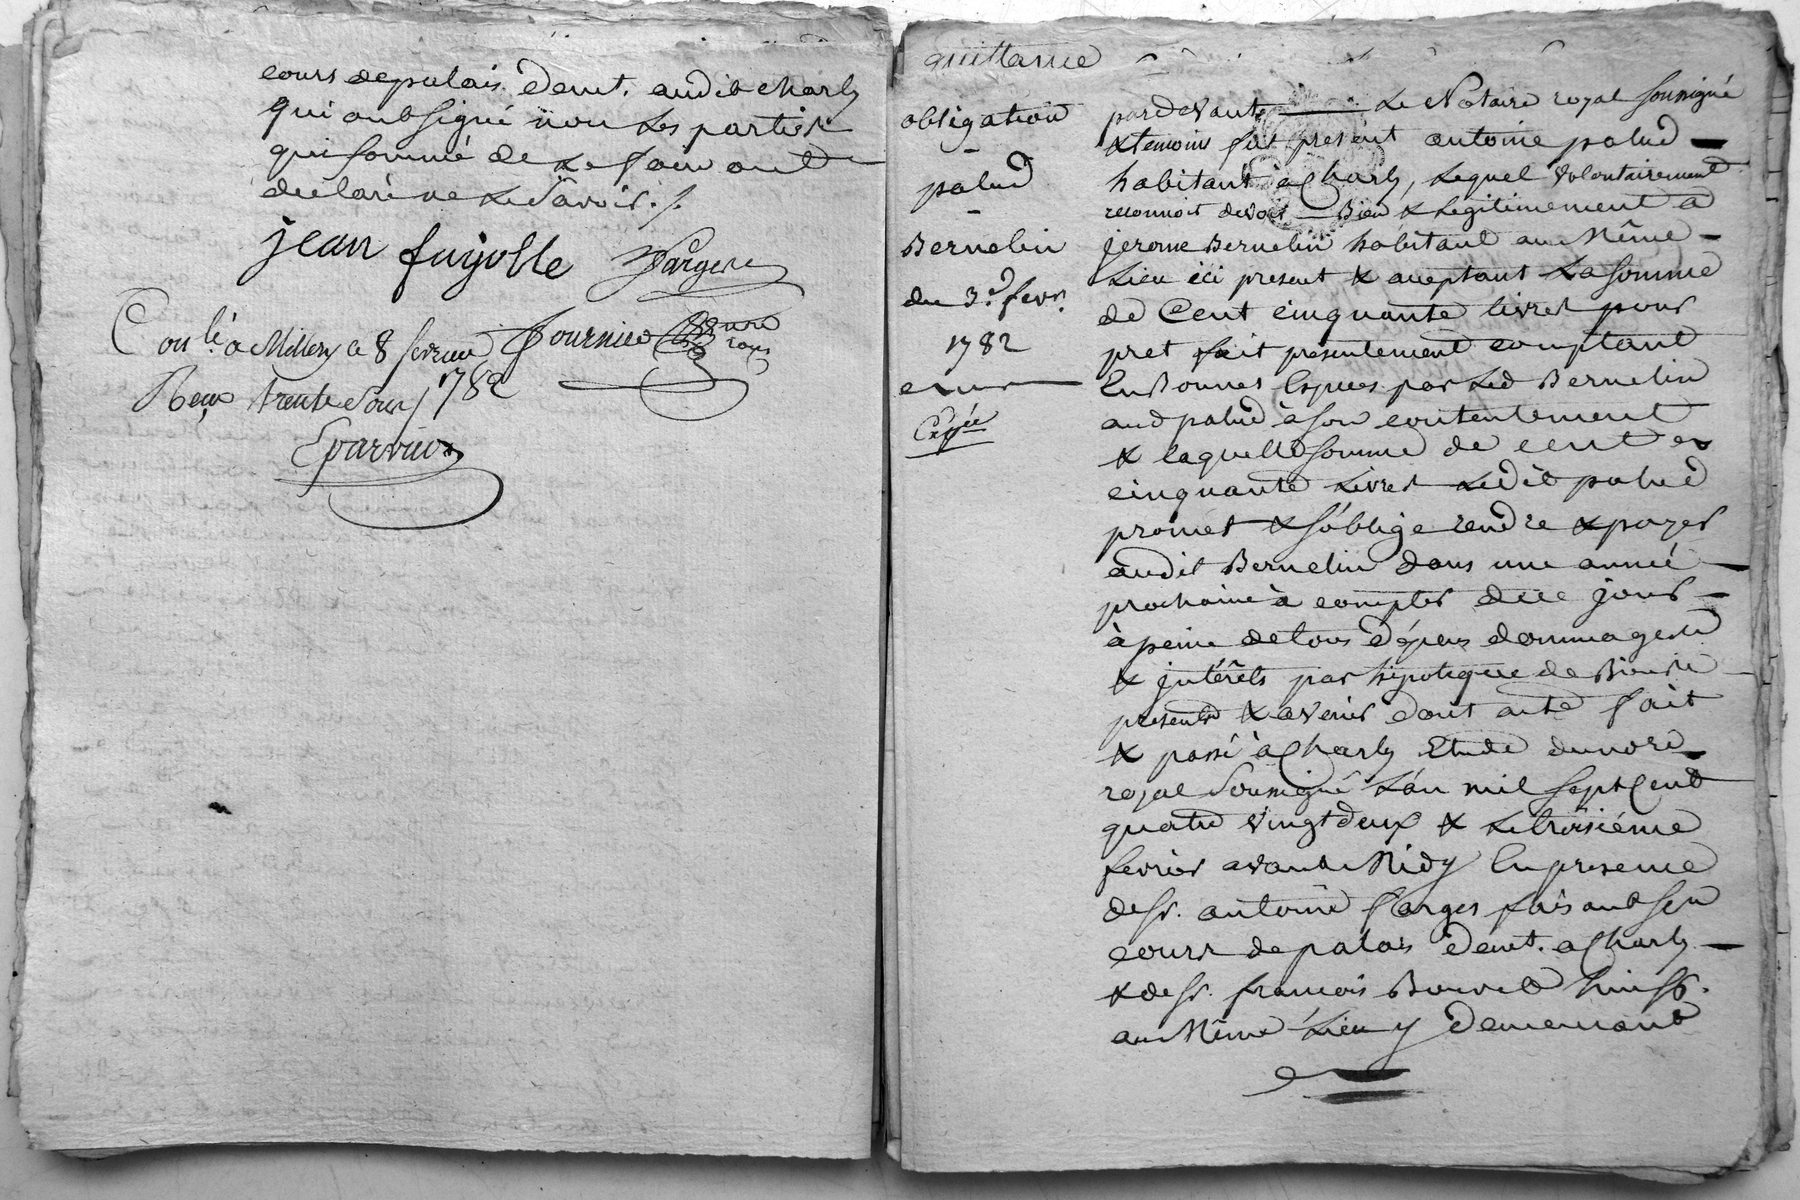 cours de palais demt. audit charly
qui ont signé non les parties
qui sommé de le faire ont
déclaré ne le savoir ./.
jean fayolle farges
Fournier nre roial
Conlé a Millery ce 8 fevrier 1782
Reçu trente sous
Eparvier
quittance
obligation
palud
Bernelin
du 3e. fevr.
1782
Expée
pardevant le Notaire royal soussigné
& temoins fut present antoine palud
habitant à Charly, lequel volontairement
reconnoit devoir Bien & legitimement a
jerome Bernelin habitant au Même
Lieu ici present & aceptant La somme
de Cent cinquante livres pour
pret fait presentement comptant
En Bonnes Especes par Led Bernelin
aud palud à son contentement
& laquelle somme de cent
cinquante Livres Ledit palud
promet & s'oblige rendre & payer
audit Bernelin dans une année
prochaine à compter de ce jour
à peine de tous dépens dommages
& jntérêts par hipoteque de Biens
presents & avenir dont acte fait
& passé à Charly Etude du nore
royal soussigné L'an mil sept Cent
quatre vingt deux & Le troisiéme
fevrier avant Midy En presence
de sr. antoine farges faisant son
cours de palais demt. a Charly
& de sr. francois Bouvet huiss.
au Même Lieu y demeurant